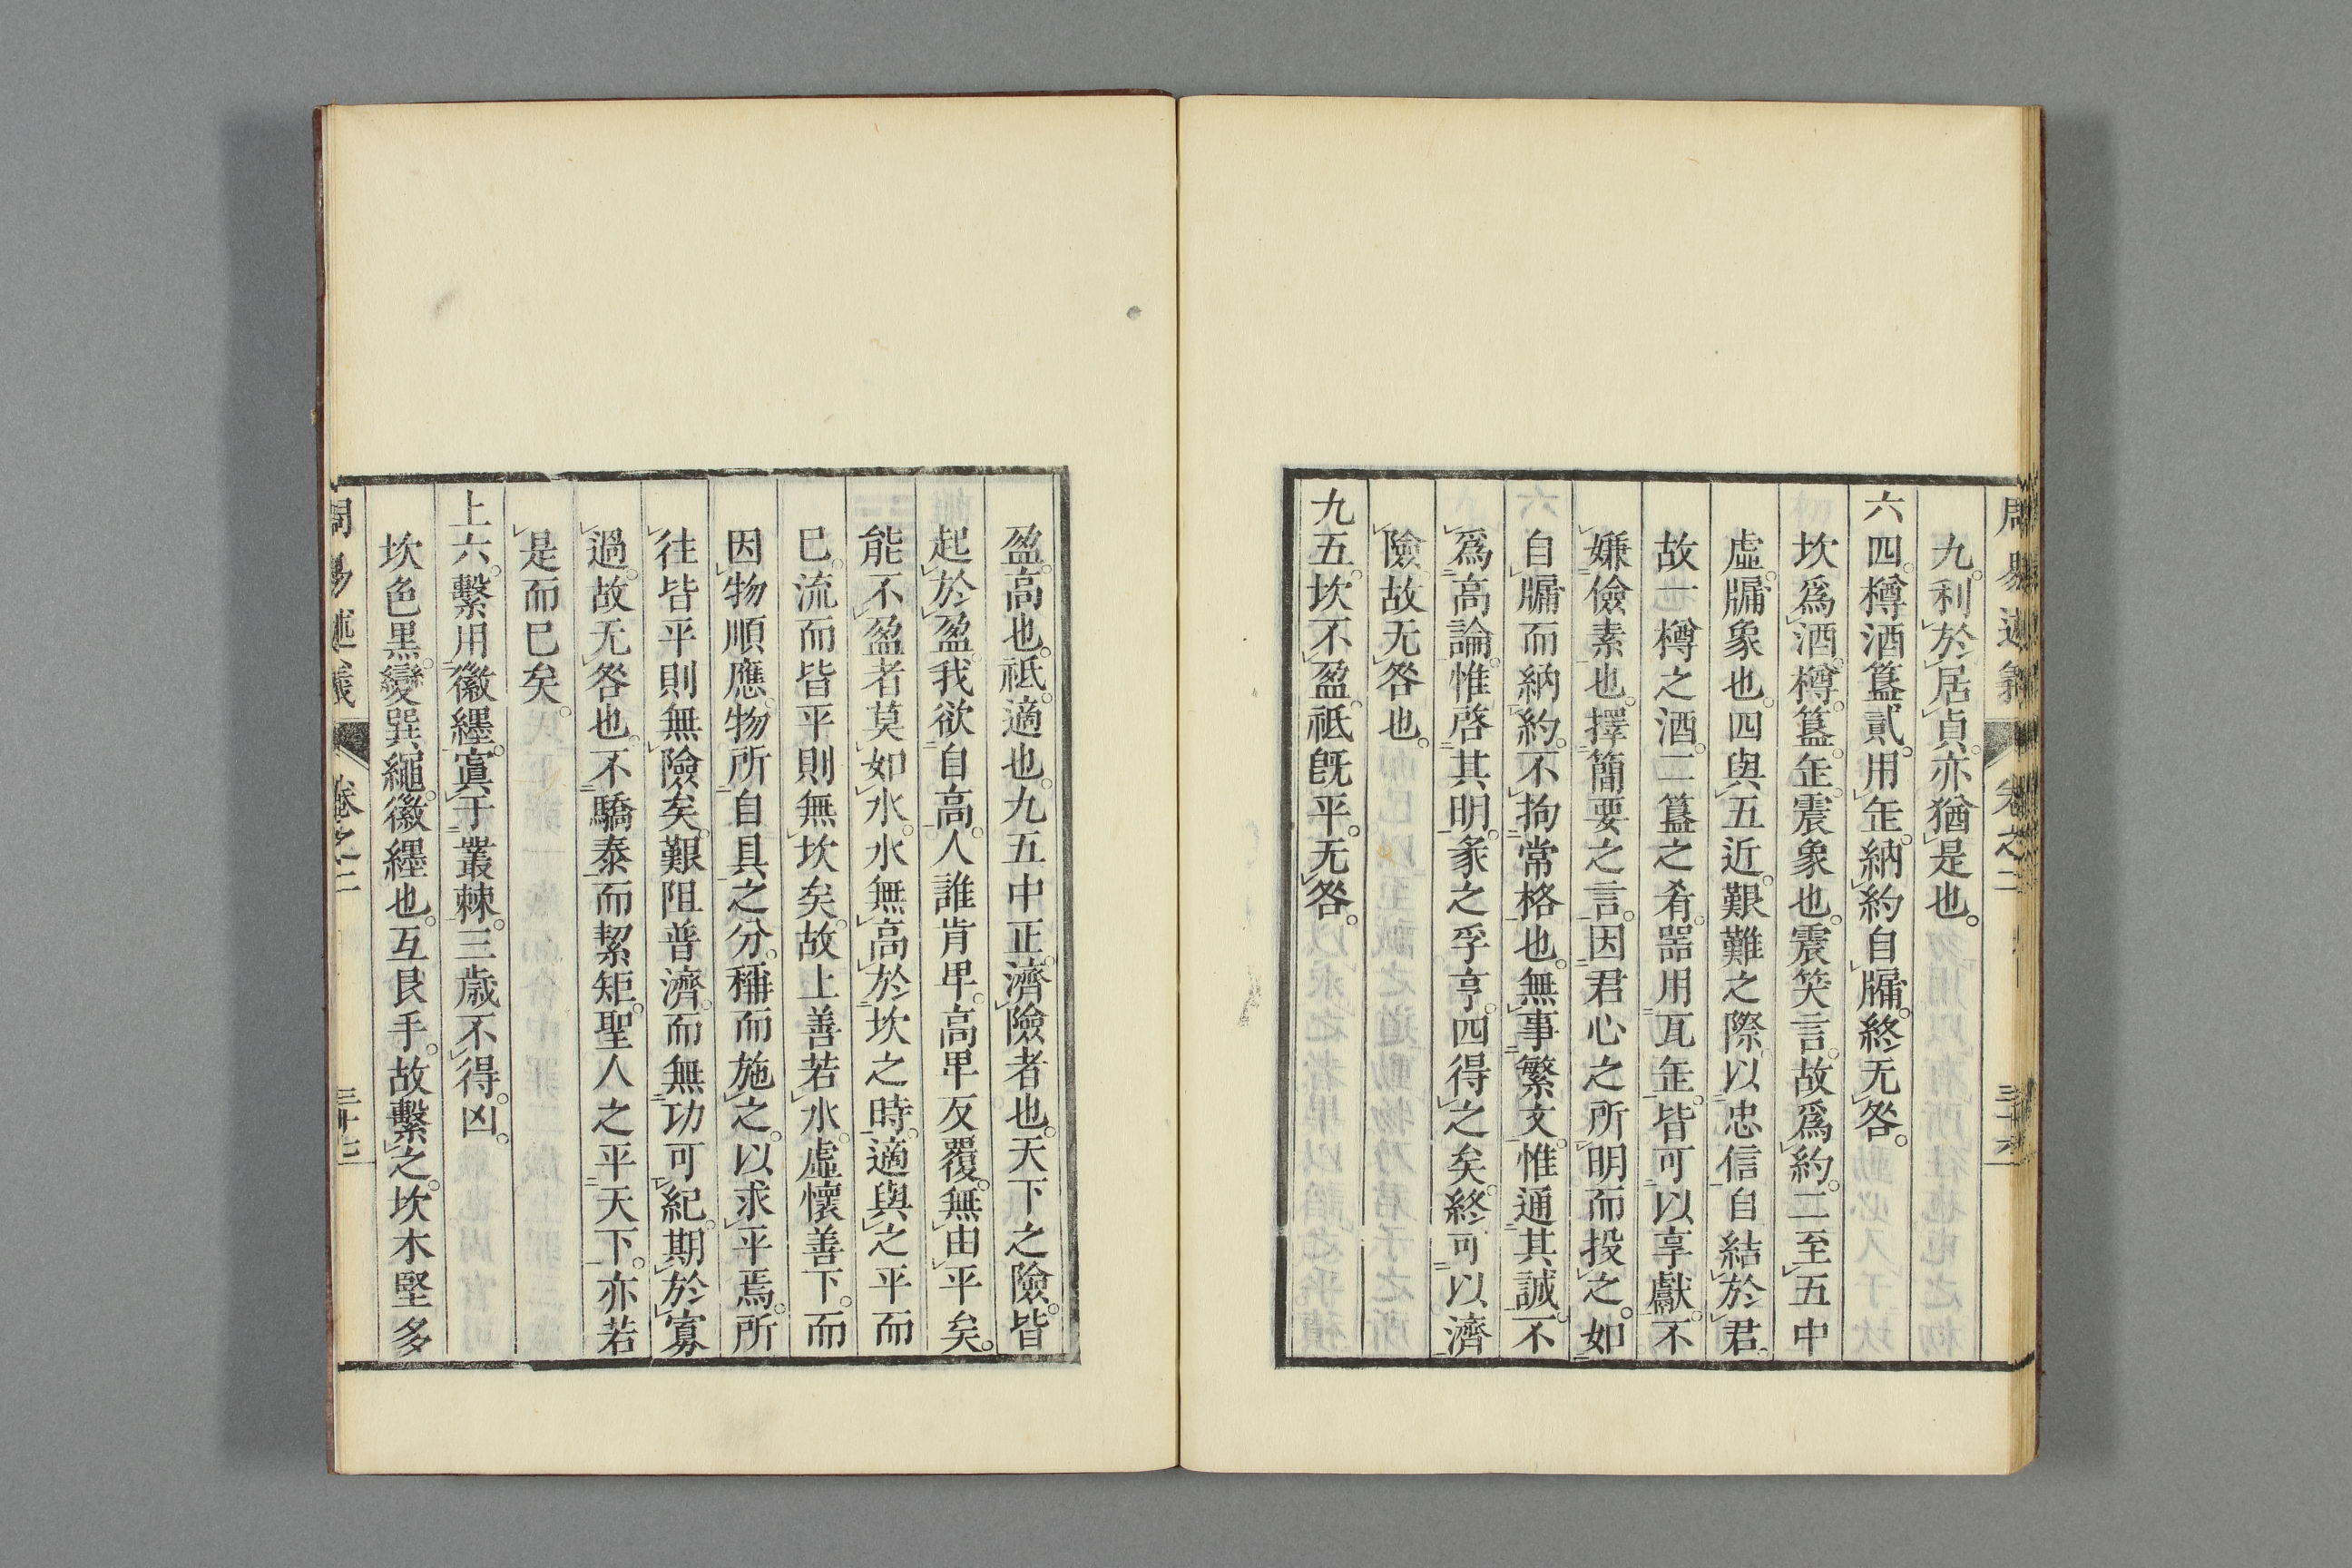 周易述義 卷之三 三十六
九。利於居貞。亦猶是也。
六四。樽酒簋貳。用缶。納約自牖。終无咎。
坎爲酒。樽簋。缶。震象也。震笑言。故爲約。二至五中
虛。牖象也。四與五近。艱難之際。以忠信自結於君。
故一樽之酒。二簋之肴。器用瓦缶。皆可以享獻。不
嫌儉素也。擇簡要之言。因君心之所明而投之。如
自牖而納約。不拘常格也。無事繁文。惟通其誠。不
爲高論。惟啓其明。彖之孚亨。四得之矣。終可以濟
險。故无咎也。
九五。坎不盈。祗旣平。无咎。
盈。高也。祗。適也。九五中正。濟險者也。天下之險。皆
起於盈。我欲自高。人誰肯卑。高卑反覆。無由平矣。
能不盈者莫如水。水無高於坎之時。適與之平而
巳。流而皆平則無坎矣。故上善若水。虛懷善下。而
因物順應。物所自具之分。稱而施之。以求平焉。所
往皆平則無險矣。艱阻普濟。而無功可紀。期於寡
過。故无咎也。不驕泰而絜矩。聖人之平天下。亦若
是而巳矣。
上六。繫用徽纆。寘于叢棘。三歲不得。凶。
坎色黑。變巽繩。徽纆也。互艮手。故繫之。坎木堅多
周易述義 卷之三 三十七